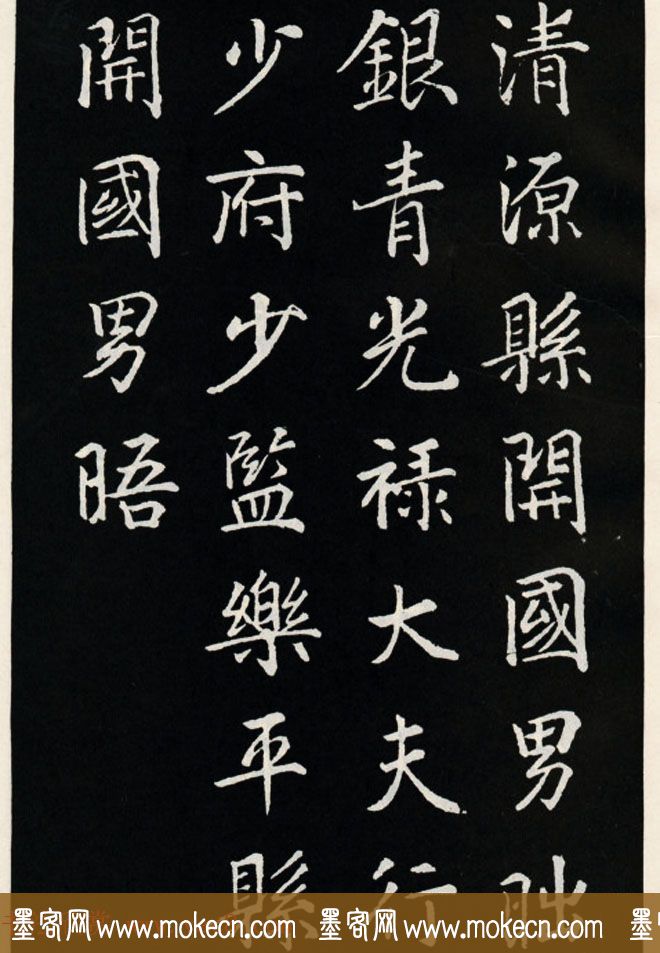 清源縣開國男
銀青光禄大夫行
少府少監樂平縣
開國男晤
墨客网 www.mokecn.com 墨客网 www.mokecn.com 墨